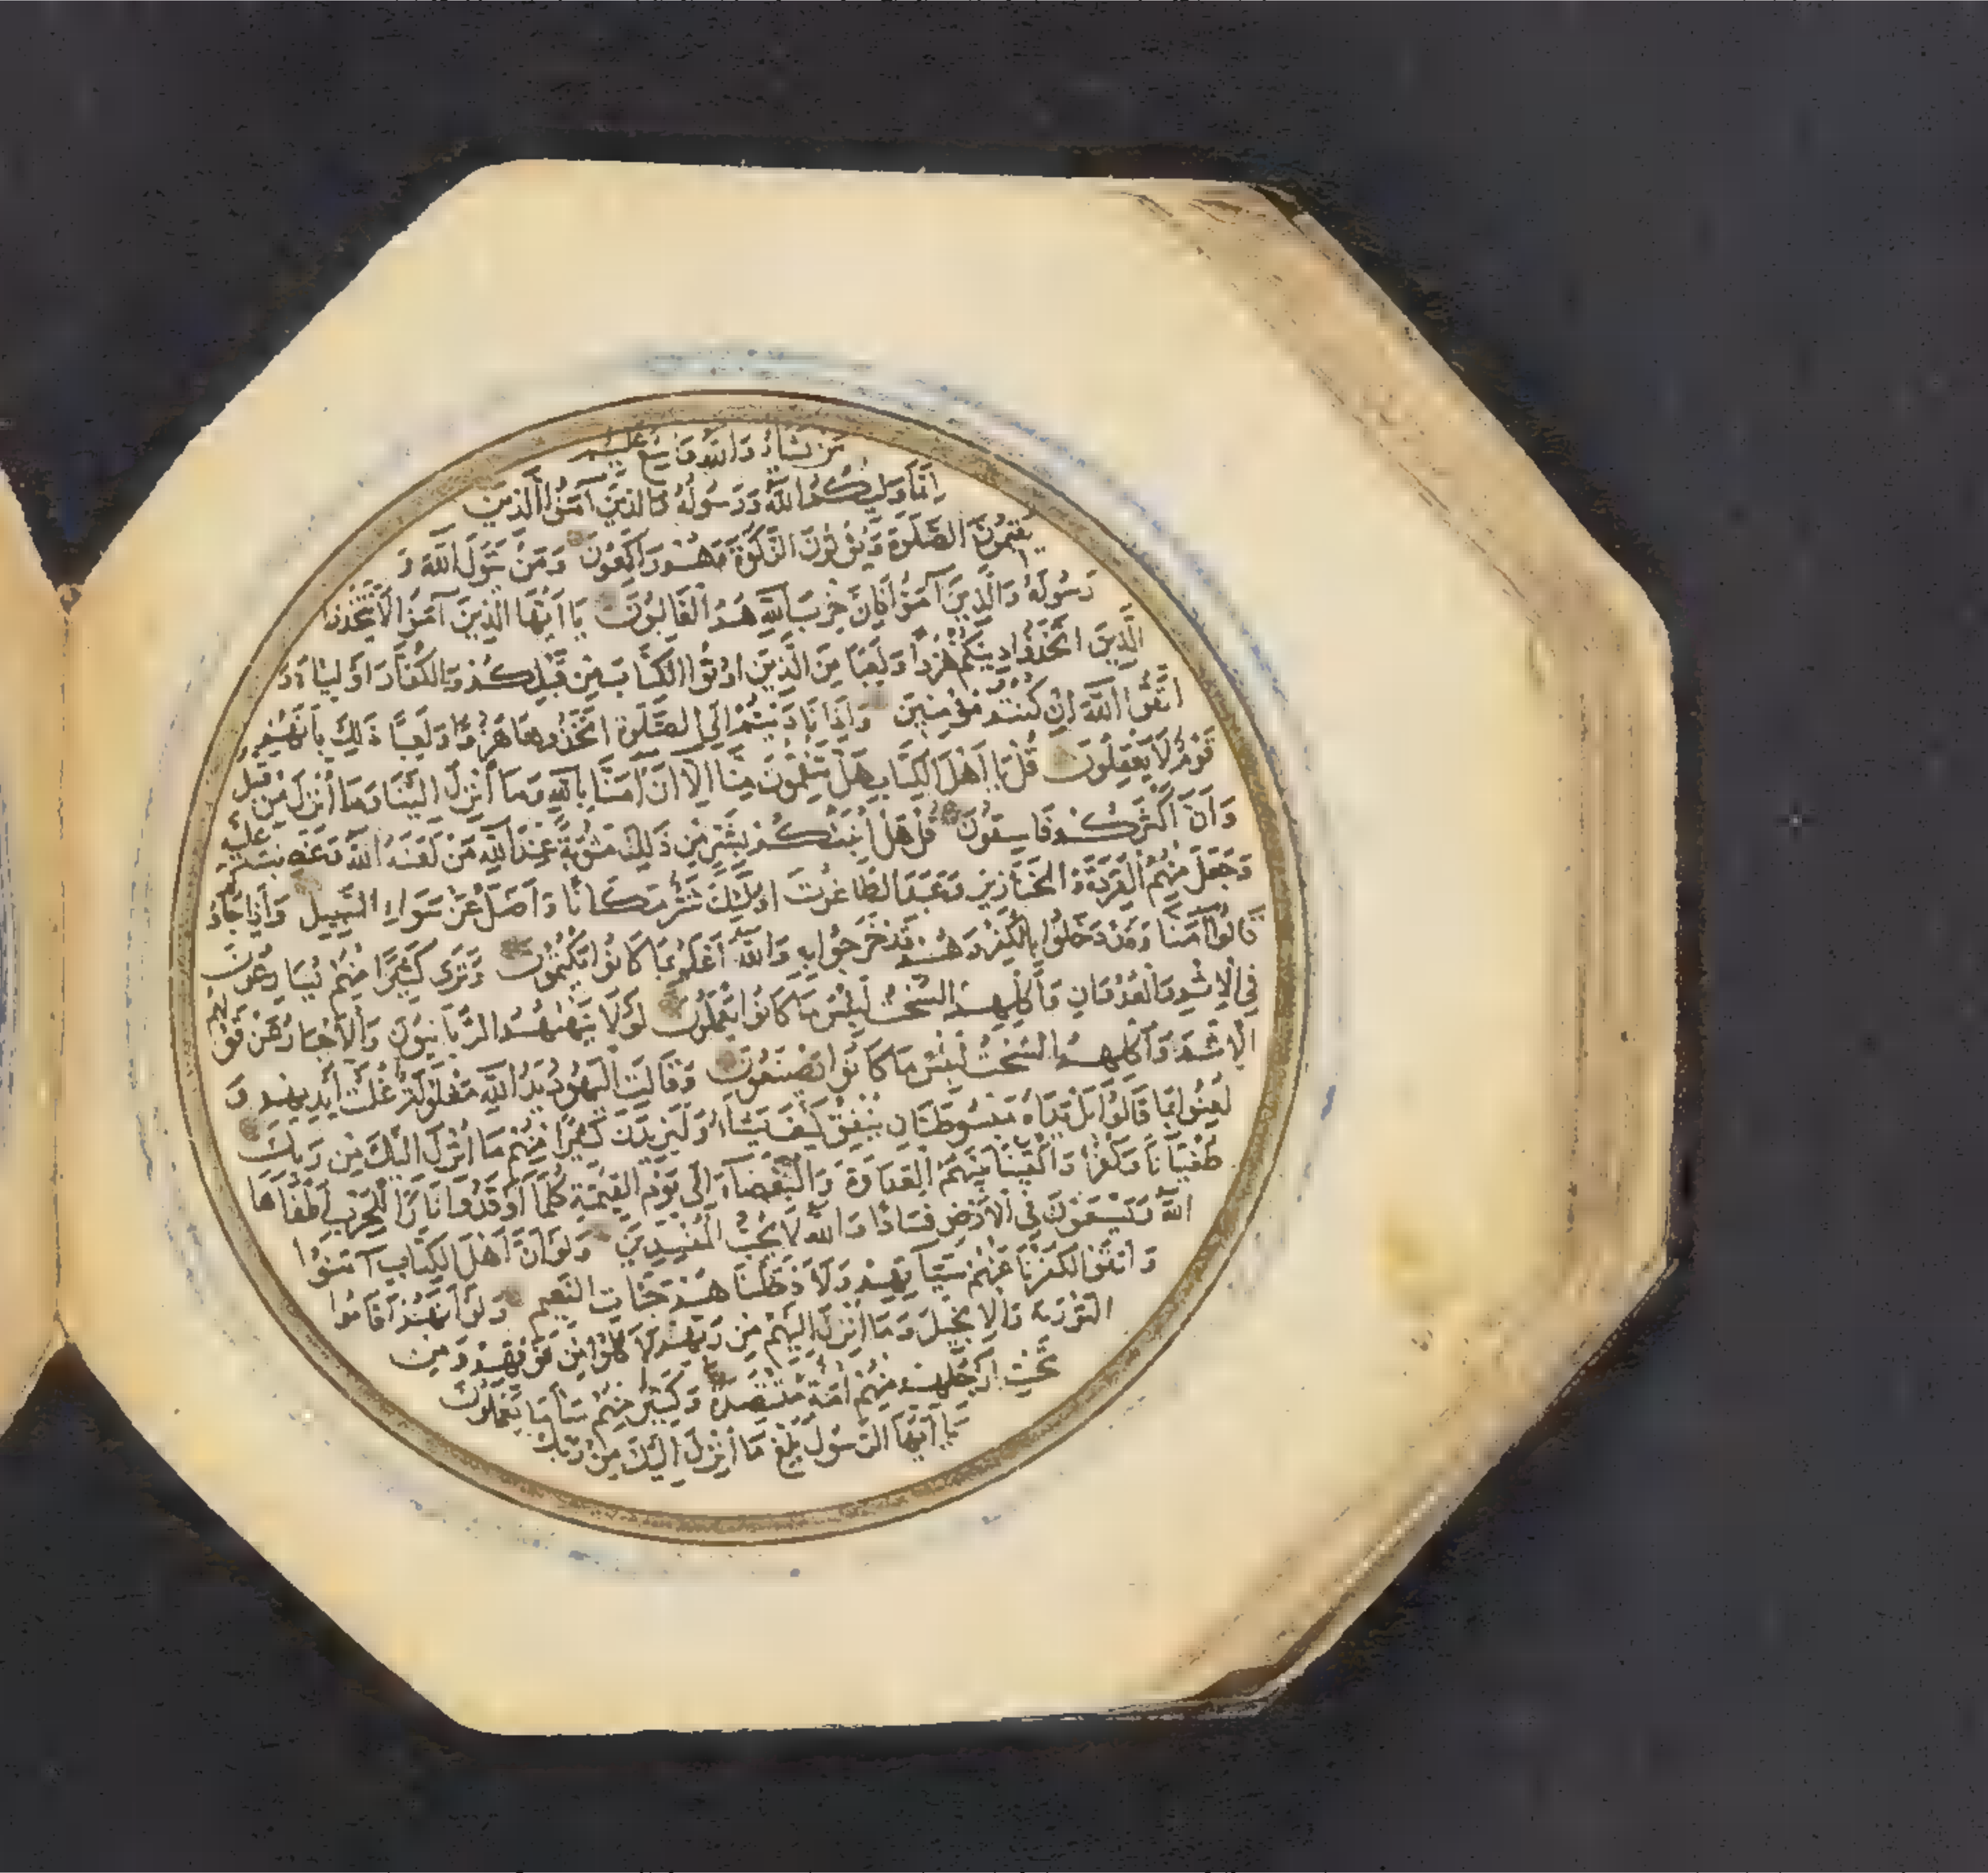 مَنْ يَشَاءُ وَاللهُ وَاسِعٌ عَلِيمٌ
اِنَّمَا وَلِيُّكُمُ اللهُ وَرَسُولُهُ وَالَّذِينَ آمَنُوا الَّذِينَ
يُقِيمُونَ الصَّلٰوةَ وَيُؤْتُونَ الزَّكٰوةَ وَهُمْ رَاكِعُونَ وَمَنْ يَتَوَلَّ اللهَ وَ
رَسُولَهُ وَالَّذِينَ آمَنُوا فَاِنَّ حِزْبَ اللهِ هُمُ الْغَالِبُونَ يَا اَيُّهَا الَّذِينَ آمَنُوا لَا تَتَّخِذُوا
الَّذِينَ اتَّخَذُوا دِينَكُمْ هُزُوًا وَلَعِبًا مِنَ الَّذِينَ اُوتُوا الْكِتَابَ مِنْ قَبْلِكُمْ وَالْكُفَّارَ اَوْلِيَاءَ وَ
اتَّقُوا اللهَ اِنْ كُنْتُمْ مُؤْمِنِينَ وَاِذَا نَادَيْتُمْ اِلَى الصَّلٰوةِ اتَّخَذُوهَا هُزُوًا وَلَعِبًا ذٰلِكَ بِاَنَّهُمْ
قَوْمٌ لَا يَعْقِلُونَ قُلْ يَا اَهْلَ الْكِتَابِ هَلْ تَنْقِمُونَ مِنَّا اِلَّا اَنْ آمَنَّا بِاللهِ وَمَا اُنْزِلَ اِلَيْنَا وَمَا اُنْزِلَ مِنْ قَبْلُ
وَاَنَّ اَكْثَرَكُمْ فَاسِقُونَ قُلْ هَلْ اُنَبِّئُكُمْ بِشَرٍّ مِنْ ذٰلِكَ مَثُوبَةً عِنْدَ اللهِ مَنْ لَعَنَهُ اللهُ وَغَضِبَ عَلَيْهِ
وَجَعَلَ مِنْهُمُ الْقِرَدَةَ وَالْخَنَازِيرَ وَعَبَدَ الطَّاغُوتَ اُولٰئِكَ شَرٌّ مَكَانًا وَاَضَلُّ عَنْ سَوَاءِ السَّبِيلِ وَاِذَا جَاؤُكُمْ
قَالُوا آمَنَّا وَقَدْ دَخَلُوا بِالْكُفْرِ وَهُمْ قَدْ خَرَجُوا بِهِ وَاللهُ اَعْلَمُ بِمَا كَانُوا يَكْتُمُونَ وَتَرٰى كَثِيرًا مِنْهُمْ يُسَارِعُونَ
فِي الْاِثْمِ وَالْعُدْوَانِ وَاَكْلِهِمُ السُّحْتَ لَبِئْسَ مَا كَانُوا يَعْمَلُونَ لَوْلَا يَنْهٰيهُمُ الرَّبَّانِيُّونَ وَالْاَحْبَارُ عَنْ قَوْلِهِمُ
الْاِثْمَ وَاَكْلِهِمُ السُّحْتَ لَبِئْسَ مَا كَانُوا يَصْنَعُونَ وَقَالَتِ الْيَهُودُ يَدُ اللهِ مَغْلُولَةٌ غُلَّتْ اَيْدِيهِمْ وَ
لُعِنُوا بِمَا قَالُوا بَلْ يَدَاهُ مَبْسُوطَتَانِ يُنْفِقُ كَيْفَ يَشَاءُ وَلَيَزِيدَنَّ كَثِيرًا مِنْهُمْ مَا اُنْزِلَ اِلَيْكَ مِنْ رَبِّكَ
طُغْيَانًا وَكُفْرًا وَاَلْقَيْنَا بَيْنَهُمُ الْعَدَاوَةَ وَالْبَغْضَاءَ اِلٰى يَوْمِ الْقِيٰمَةِ كُلَّمَا اَوْقَدُوا نَارًا لِلْحَرْبِ اَطْفَاَهَا
اللهُ وَيَسْعَوْنَ فِي الْاَرْضِ فَسَادًا وَاللهُ لَا يُحِبُّ الْمُفْسِدِينَ وَلَوْ اَنَّ اَهْلَ الْكِتَابِ آمَنُوا
وَاتَّقَوْا لَكَفَّرْنَا عَنْهُمْ سَيِّئَاتِهِمْ وَلَاَدْخَلْنَاهُمْ جَنَّاتِ النَّعِيمِ وَلَوْ اَنَّهُمْ اَقَامُوا
التَّوْرٰيةَ وَالْاِنْجِيلَ وَمَا اُنْزِلَ اِلَيْهِمْ مِنْ رَبِّهِمْ لَاَكَلُوا مِنْ فَوْقِهِمْ وَمِنْ
تَحْتِ اَرْجُلِهِمْ مِنْهُمْ اُمَّةٌ مُقْتَصِدَةٌ وَكَثِيرٌ مِنْهُمْ سَاءَ مَا يَعْمَلُونَ
يَا اَيُّهَا الرَّسُولُ بَلِّغْ مَا اُنْزِلَ اِلَيْكَ مِنْ رَبِّكَ